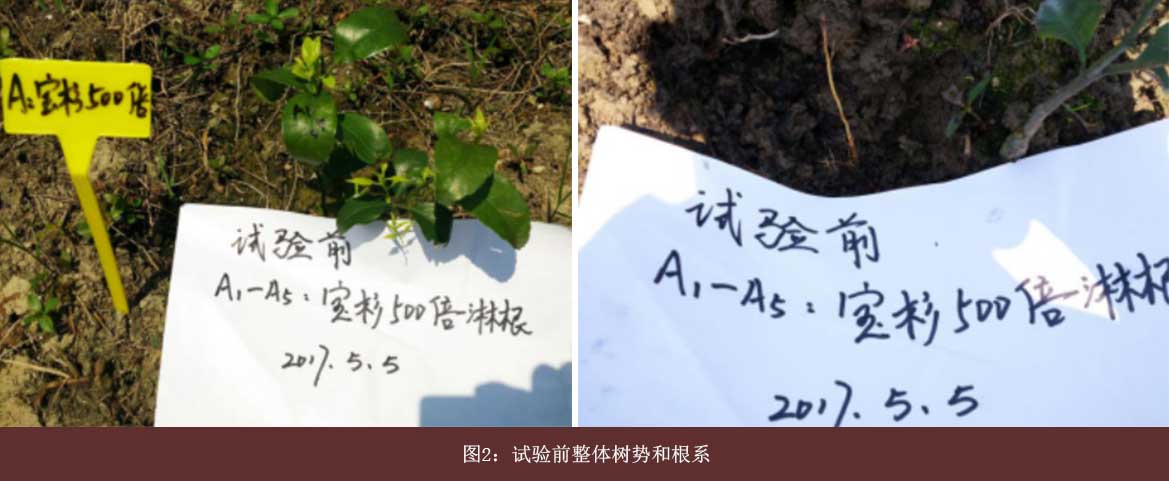 A:宝杉500倍
试验前
A₁-A₅:宝杉500倍淋根
2017.5.5
试验前
A₁-A₅:宝杉500倍淋根
2017.5.5
图2：试验前整体树势和根系